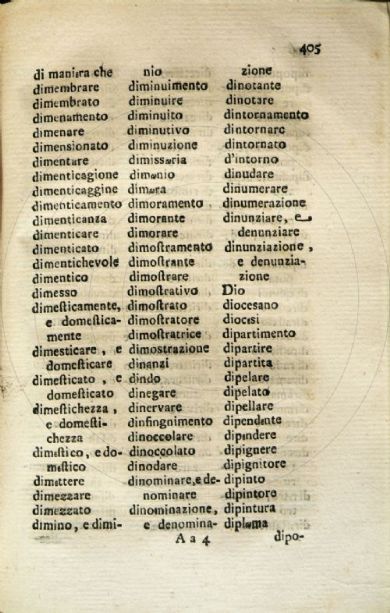 405
di maniera che
dimembrare
dimembrato
dimenamento
dimenare
dimensionato
dimentare
dimenticagione
dimenticaggine
dimenticamento
dimenticanza
dimenticare
dimenticato
dimentichevole
dimentico
dimesso
dimeſticamente,
e domeſtica-
mente
dimeſticare, e
domeſticare
dimeſticato, e
domeſticato
dimeſtichezza,
e domeſti-
chezza
dimeſtico, e do-
meſtico
dimettere
dimezzare
dimezzato
dimino, e dimi-
nio
diminuimento
diminuire
diminuito
diminutivo
diminuzione
dimissoria
dimonio
dimora
dimoramento
dimorante
dimorare
dimoſtramento
dimoſtrante
dimoſtrare
dimoſtrativo
dimoſtrato
dimoſtratore
dimoſtratrice
dimoſtrazione
dinanzi
dindo
dinegare
dinervare
dinfingnimento
dinoccolare
dinoccolato
dinodare
dinominare, e de-
nominare
dinominazione,
e denomina-
zione
dinotante
dinotare
dintornamento
dintornare
dintornato
d'intorno
dinudare
dinumerare
dinumerazione
dinunziare, e
denunziare
dinunziazione,
e denunzia-
zione
Dio
diocesano
diocesi
dipartimento
dipartire
dipartita
dipelare
dipelato
dipellare
dipendente
dipendere
dipignere
dipignitore
dipinto
dipintore
dipintura
diploma
A a 4
dipo-